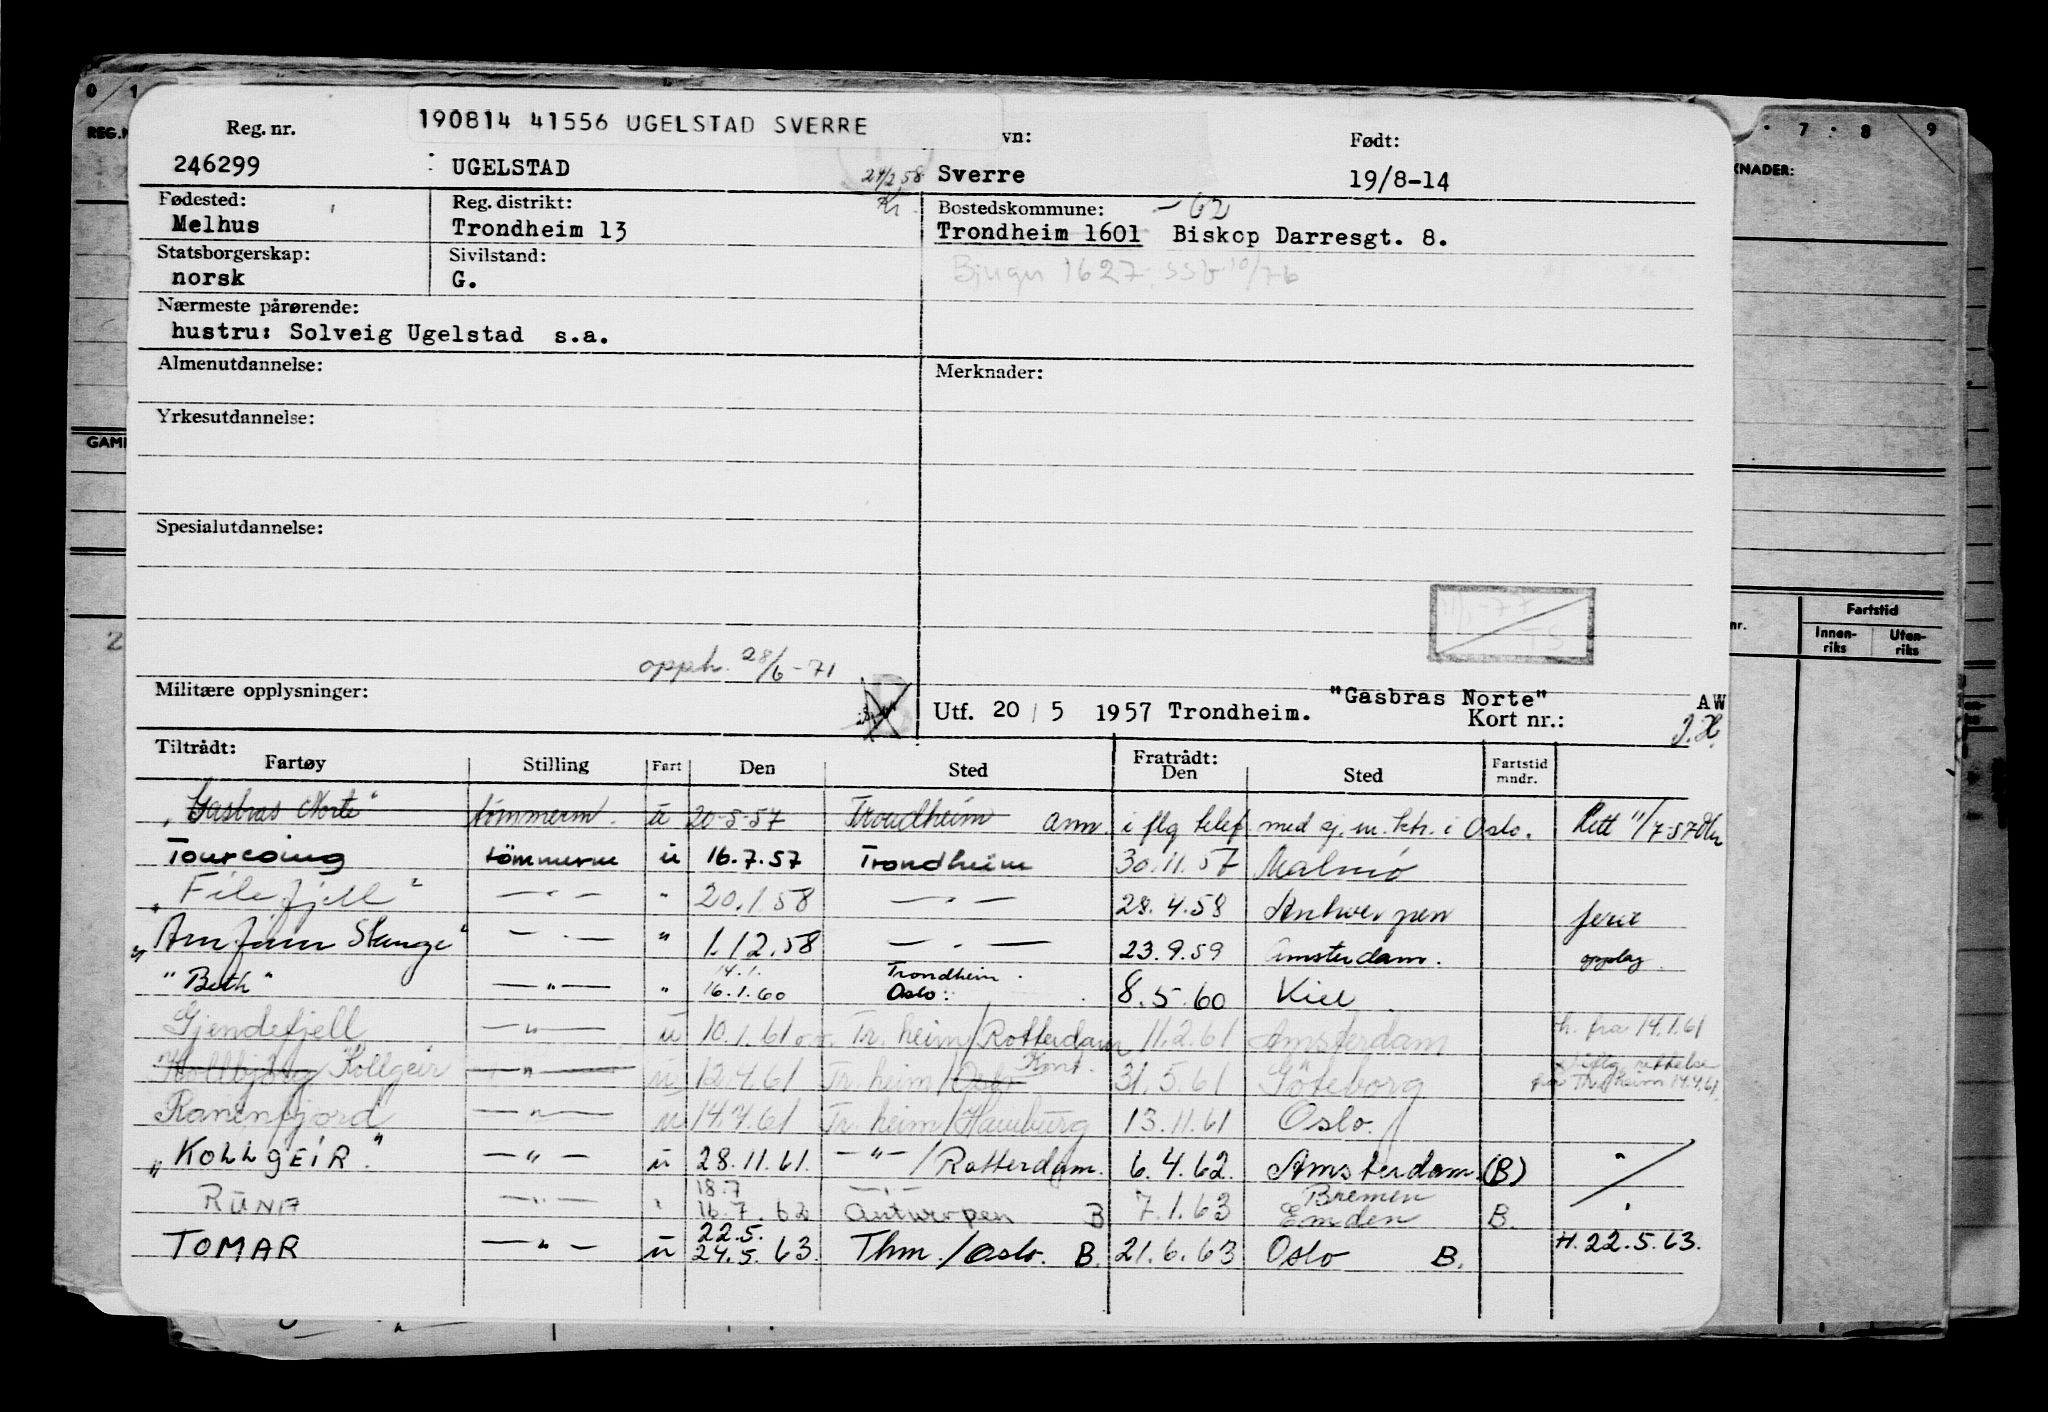 190814 41556 UGELSTAD SVERRE
Reg. nr. vn: Født:
246299 UGELSTAD 24/2 58 Sverre 19/8-14
Fødested: Reg. distrikt: Bostedskommune: -62
Melhus Trondheim 13 Trondheim 1601 Biskop Darresgt. 8.
Statsborgerskap: Sivilstand: Bjugn 1627. SSB 10/76
norsk G.
Nærmeste pårørende:
hustru: Solveig Ugelstad s.a.
Almenutdannelse: Merknader:
Yrkesutdannelse:
Spesialutdannelse:
opph. 28/6-71
Militære opplysninger: Utf. 20/5 1957 Trondheim. "Gasbras Norte" AW
Kort nr.: J.H.
Tiltrådt: Fratrådt:
Fartøy Stilling Fart Den Sted Den Sted Fartstid mndr.
"Gasbras Norte" tömmerm. u 20-5-57 Trondheim ann. i flg telef. med sj.m.ktr. i Oslo. Rett 11/7-57
Tourcoing tömmerm u 16.7.57 Trondheim 30.11.57 Malmö
"Filefjell" — " — " 20.1.58 — " — 28.4.58 Antwerpen ferie
"Stange" — " — " 1.12.58 — " — 23.9.59 Amsterdam. opplag.
"Beth" — " — " 14.1. 16.1.60 Trondheim. Oslo. 8.5.60 Kiel
Gjendefjell — " — u 10.1.61 Tr. heim/Rotterdam 11.2.61 Amsterdam h. fra 14.1.61
Kollbjörg Kollgeir — " — u 12.4.61 Tr. heim/Oslo Kont. 31.5.61 Göteborg iflg. rettelse fra Tr. heim 14.4.61
Ranenfjord — " — u 14.7.61 Tr. heim/Hamburg 13.11.61 Oslo.
"KOLLGEIR." — " — u 28.11.61. — " — /Rotterdam. 6.4.62. Amsterdam. (B) "
RUNA — " — " 18.7 16.7.62 — " — Antwerpen B 7.1.63 Bremen Emden B. "
TOMAR — " — u 22.5. 24.5.63. Thm./Oslo. B. 21.6.63 Oslo B. H. 22.5.63.
0 1 7 8 9
REG.N
KNADER:
GAM
2
nr. Fartstid
Innen-riks Uten-riks